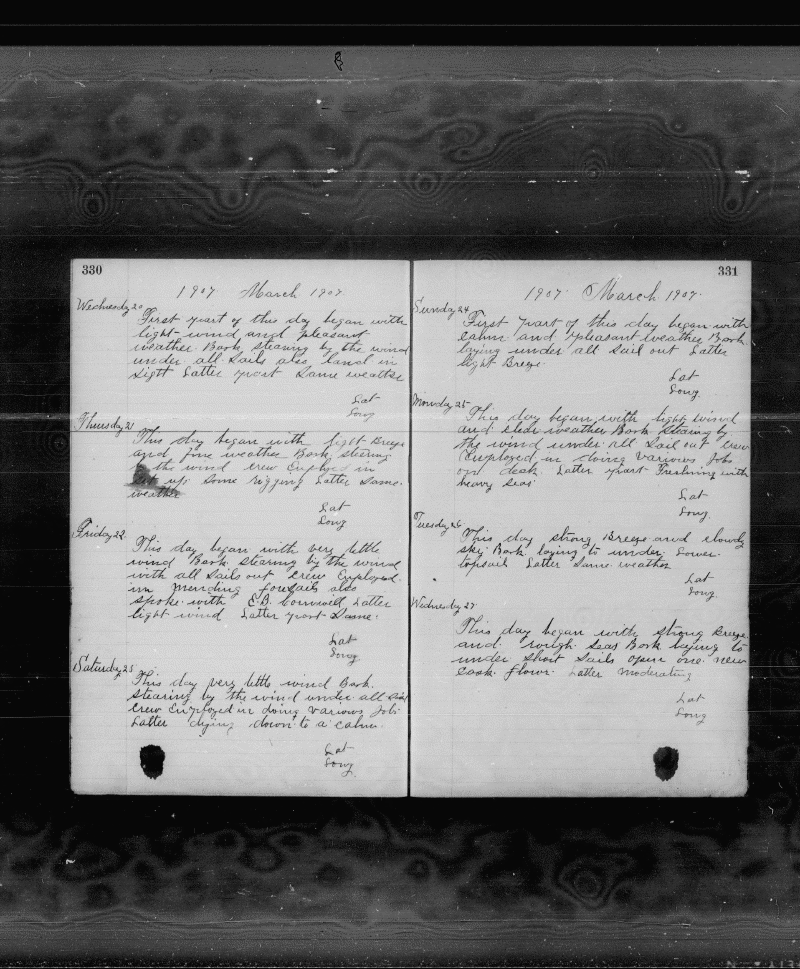 330
1907 March 1907.
Wednesday 20
First part of this day began with
light wind and pleasant
weather Bark stearing by the wind
under all Sails also land in
sight Latter part Same weather
Lat
Long
Thursday 21
This day began with light Breeze
and fine weather Bark stearing
by the wind crew Employed in
set up some rigging Latter Same
weather
Lat
Long
Friday 22
This day began with very lettle
wind Bark stearing by the wind
with all Sails out crew Employed
in mending foresails also
spoke with C.B. Latter
light wind Latter part Same.
Lat
Long
Saturday 23
This day very lettle wind Bark
stearing by the wind under all Sail
crew Employed in doing various Job
Latter dying down to a calm.
Lat
Long
331
1907. March 1907.
Sunday 24
First part of this day began with
calm and pleasant weather Bark
laying under all Sail out Latter
light Breeze
Lat
Long
Monday 25
This day began with light wind
and clear weather Bark stearing by
the wind under all Sail out crew
Employed in doing various Jobs
on deck Latter part Freshning with
heavy Seas
Lat
Long.
Tuesday 26
This day strong Breeze and clowdy
sky Bark laying to under Lower
topsail Latter Same weather
Lat
Long.
Wednesday 27
This day began with strong Breeze
and rough Seas Bark laying to
under Short Sails open one new
cask flour Latter moderating
Lat
Long